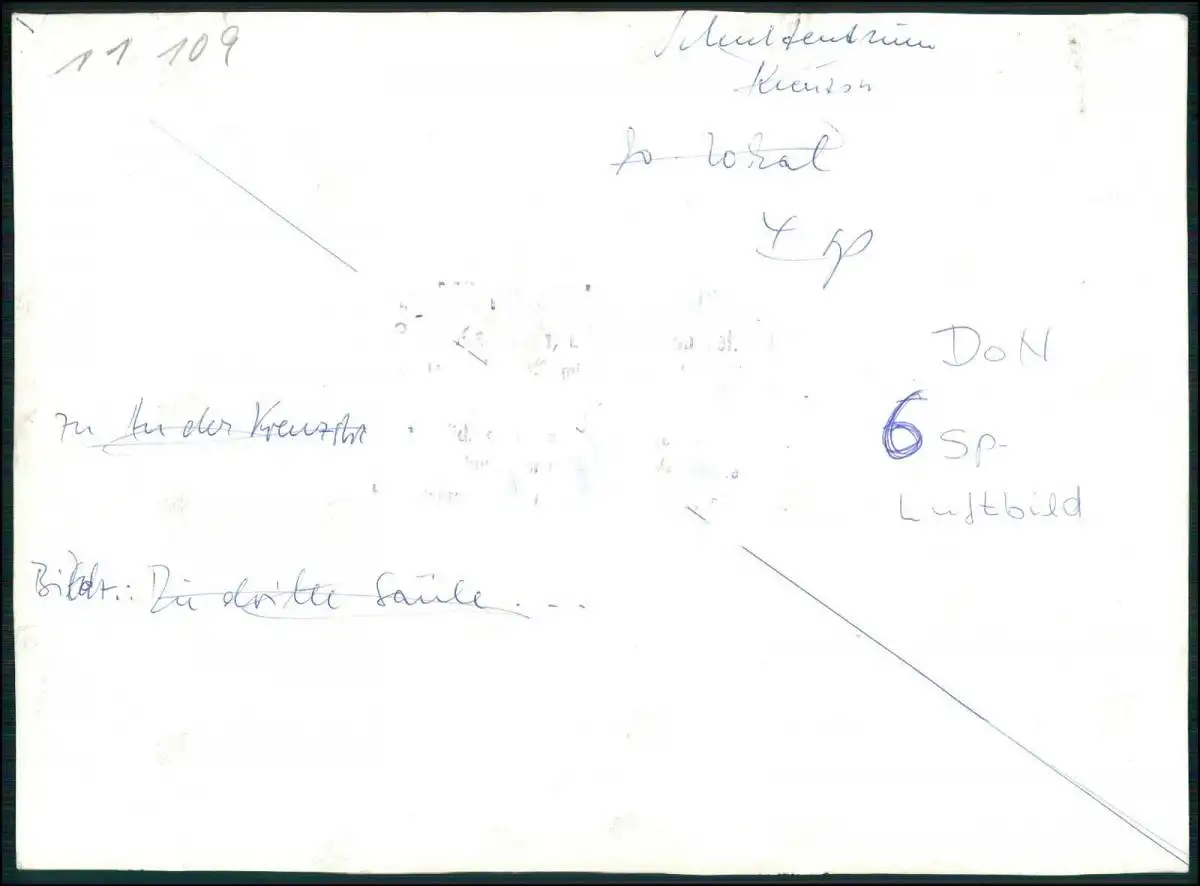 11 109
Schulzentrum
Kreuzau
So. Lokal
4 sp
DoN
6 Sp-
Luftbild
zu An der Kreuzstr
Bildt.: Die dritte Säule . - -